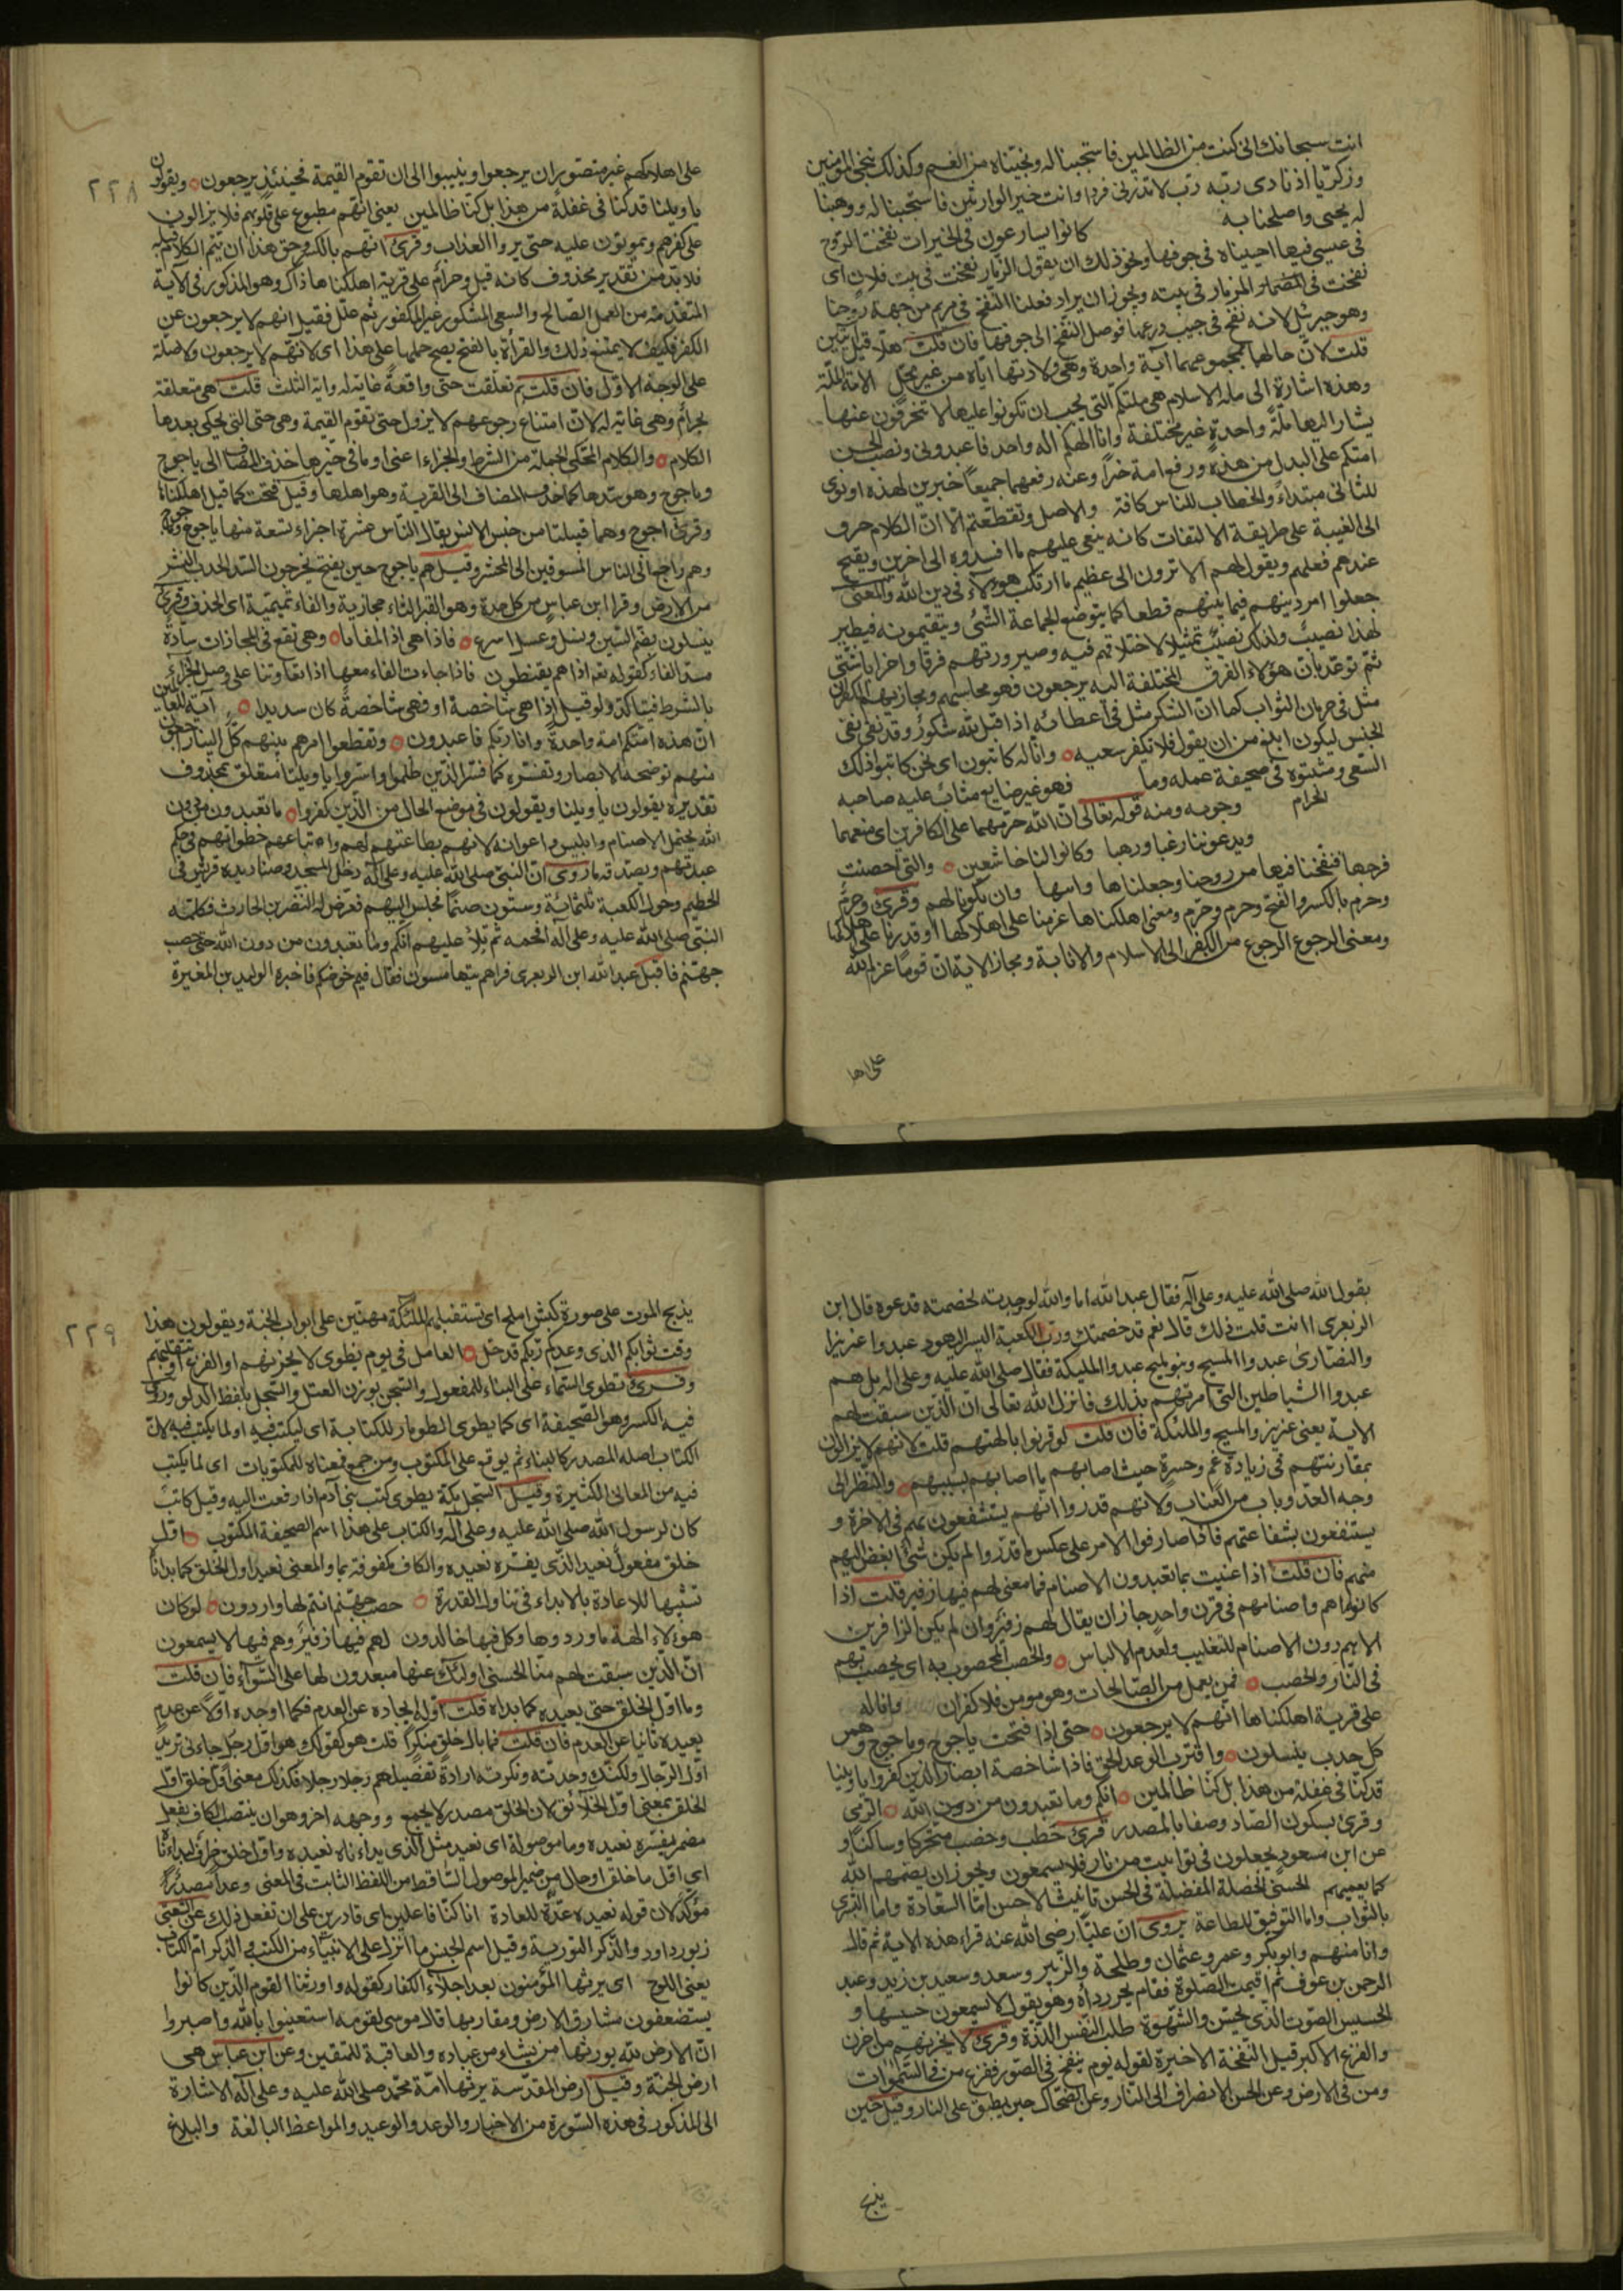 انت سبحانك انى كنت من الظالمين فاستجبنا له ونجيناه من الغم وكذلك ننجى المؤمنين
وزكريا اذ نادى ربه رب لا تذرنى فردا وانت خير الوارثين فاستجبنا له ووهبنا
له يحيى واصلحنا به كانوا يسارعون فى الخيرات نفخنا الروح
فى عيسى فيها احييناه فى جوفها ونحو ذلك ان يقول الزمار نفخت فى بيت فلان اى
نفخت فى المزمار فى بيته ويجوز ان يراد فعلنا النفخ فى مريم من جهة روحنا
وهو جبرئيل لانه نفخ فى جيب درعها فوصل النفخ الى جوفها فان قلت هلا قيل آيتين
قلت لان حالهما بمجموعهما آية واحدة وهى ولادتها اياه من غير فحل الامة الملة
وهذه اشارة الى ملة الاسلام هى ملتكم التى يجب ان تكونوا عليها لا تنحرفون عنها
يشار اليها ملة واحدة غير مختلفة وانا الهكم اله واحد فاعبدونى ونصب الحسن
امتكم على البدل من هذه ورفع امة خبرا وعنه رفعهما جميعا خبرين لهذه او نوى
للثانى مبتداء والخطاب للناس كافة والاصل وتقطعتم الا ان الكلام حرف
الى الغيبة على طريقة الالتفات كانه ينعى عليهم ما افسدوه الى اخرين ويقبح
عندهم فعلهم ويقول لهم الا ترون الى عظيم ما ارتكب هؤلاء فى دين الله والمعنى
جعلوا امر دينهم فيما بينهم قطعا كما يتوضع الجماعة الشئ ويتقسمونه فيطير
لهذا نصيب ولذلك نصيب تمثيلا لاختلافهم فيه وصيرورتهم فرقا واحزابا شتى
ثم توعد بان هؤلاء الفرق المختلفة اليه يرجعون فهو محاسبهم ومجازيهم الكفران
مثل فى حرمان الثواب كما ان الشكر مثل فى اعطائه اذا قيل لله شكور وقد نفى نفى
الجنس ليكون ابلغ من ان يقول فلا نكفر سعيه وانا له كاتبون اى نحن كاتبوا ذلك
السعى ومثبتوه فى صحيفة عمله وما فهو غير ضايع مثاب عليه صاحبه
الحرام وجوبه ومنه قوله تعالى ان الله حرمهما على الكافرين اى منعهما
ويدعوننا رغبا ورهبا وكانوا لنا خاشعين والتى احصنت
فرجها فنفخنا فيها من روحنا وجعلناها وابنها وان يكونا لهم وقرئ وحرم
وحرم بالكسر والفتح وحرم وحرم ومعنى اهلكناها عزمنا على اهلاكها او قدرنا على اهلاكها
ومعنى الرجوع الرجوع من الكفر الى الاسلام والانابة ومجاز الاية ان قوما عزم الله
على اها
٢٢٨
على اهلاكهم غير متصور ان يرجعوا وينيبوا الى ان تقوم القيمة فحينئذ يرجعون ويقولون
يا ويلنا قد كنا فى غفلة من هذا بل كنا ظالمين يعنى انهم مطبوع على قلوبهم فلا يزالون
على كفرهم ويموتون عليه حتى يروا العذاب وقرئ انهم بالكسر وحق هذا ان يتم الكلام قبله
فلا بد من تقدير محذوف كانه قيل وحرام على قرية اهلكناها ذاك وهو المذكور فى الآية
المتقدمة من العمل الصالح والسعى المشكور غير المكفور ثم علل فقيل انهم لا يرجعون عن
الكفر فكيف لا يمتنع ذلك والقراءة بالفتح يصح حملها على هذا اى لانهم لا يرجعون ولا صلة
على الوجه الاول فان قلت بم تعلقت حتى واقعة غاية له واية الثلث قلت هى متعلقة
بحرام وهى غاية له لان امتناع رجوعهم لا يزول حتى تقوم القيمة وهى حتى التى يحكى بعدها
الكلام والكلام المحكى الجملة من الشرط والجزاء اعنى اذا وما فى حيزها حذف المضاف الى ياجوج
وماجوج وهو سدها كما حذف المضاف الى القرية وهو اهلها وقيل فتحت كما قيل اهلكناها
وقرئ اجوج وهما قبيلتان من جنس الانس يقال الناس عشرة اجزاء تسعة منها ياجوج وماجوج
وهم راجع الى الناس المسوقين الى المحشر وقيل هم ياجوج حين يفتح يخرجون السد الحدب النشز
من الارض وقرا ابن عباس من كل جدث وهو القبر الثاء حجازية والفاء تميمية اى الجدف وقرئ
ينسلون بضم السين ونسل وعسل اسرع فاذا هى اذا المفاجاة وهى تقع فى المجازات سادة
مسد الفاء كقوله تعم اذا هم يقنطون فاذا جاءت الفاء معها اذا تعاونتا على وصل الجزاء
بالشرط فيتاكد ولو قيل اذا هى شاخصة او فهى شاخصة كان سديدا آية للعالمين
ان هذه امتكم امة واحدة وانا ربكم فاعبدون وتقطعوا امرهم بينهم كل الينا راجعون
مبهم توضحه الابصار وتفسره كما فسر الذين ظلموا واسروا يا ويلنا متعلق بمحذوف
تقديره يقولون يا ويلنا ويقولون فى موضع الحال من الذين كفروا ما تعبدون من دون
الله يحتمل الاصنام وابليس واعوانه لانهم بطاعتهم لهم واتباعهم خطواتهم فى حكم
عبدتهم ويصدقه ما روى ان النبى صلى الله عليه وعلى آله دخل المسجد وصناديد قريش فى
الحطيم وحول الكعبة ثلثمائة وستون صنما فجلس اليهم فعرض له النضر بن الحارث فكلمه
النبى صلى الله عليه وعلى آله افحمه ثم تلا عليهم انكم وما تعبدون من دون الله حصب
جهنم فاقبل عبد الله ابن الزبعرى فراهم يتهامسون فقال فيم خوضكم فاخبره الوليد بن المغيرة
بقول الله صلى الله عليه وعلى آله فقال عبد الله اما والله لو وجدته لخصمته فدعوه قال ابن
الزبعرى اانت قلت ذلك قال نعم قد خصمتك ورب الكعبة اليس اليهود عبدوا عزيرا
والنصارى عبدوا المسيح وبنو مليح عبدوا المليكة فقال صلى الله عليه وعلى اله بل هم
عبدوا الشياطين التى امرتهم بذلك فانزل الله تعالى ان الذين سبقت لهم
الاية يعنى عزير والمسيح والملئكة فان قلت لو قرنوا بالهتهم قلت لانهم لا يزالون
بمقارنتهم فى زيادة غم وحسرة حيث اصابهم ما اصابهم بسببهم والنظر الى
وجه العدو باب من العذاب ولانهم قدروا انهم يستشفعون بهم فى الاخرة و
يستنفعون بشفاعتهم فاذا صادفوا الامر على عكس ما قدروا لم يكن شئ ابغض اليهم
منهم فان قلت اذا عنيت بما تعبدون الاصنام فما معنى لهم فيها زفير قلت اذا
كانوا هم واصنامهم فى قرن واحد جاز ان يقال لهم زفير وان لم يكن الزافرين
الا هم دون الاصنام للتغليب ولعدم الالباس والحصب المحصوب به اى يحصب بهم
فى النار والحصب فمن يعمل من الصالحات وهو مومن فلا كفران وانا له
على قرية اهلكناها انهم لا يرجعون حتى اذا فتحت ياجوج وماجوج وهم من
كل حدب ينسلون واقترب الوعد الحق فاذا شاخصة ابصار الذين كفروا يا ويلنا
قد كنا فى غفلة من هذا بل كنا ظالمين انكم وما تعبدون من دون الله الرمى
وقرئ بسكون الصاد وصفا بالمصدر قرئ حطب وحضب متحركا وساكنا و
عن ابن مسعود يجعلون فى توابيت من نار فلا يسمعون ويجوز ان يصمهم الله
كما يعميهم الحسنى الخصلة المفضلة فى الحسن تانيث الاحسن اما السعادة واما البشرى
بالثواب واما التوفيق للطاعة يروى ان عليا رضى الله عنه قراء هذه الاية ثم قال
وانا منهم وابو بكر وعمر وعثمان وطلحة والزبير وسعد وسعيد بن زيد وعبد
الرحمن بن عوف ثم اقيمت الصلوة فقام يجر رداءه وهو يقول لا يسمعون حسيسها و
الحسيس الصوت الذى يحس والشهوة طلب النفس اللذة وقرئ لا يحزنهم من احزن
والفزع الاكبر قيل النفخة الاخيرة لقوله يوم ينفخ فى الصور ففزع من فى السموات
ومن فى الارض وعن الحسن الانصراف الى النار وعن الضحاك حين يطبق على النار وقيل حين
يذبح
٢٢٩
يذبح الموت على صورة كبش املح اى تستقبلهم الملئكة مهنئين على ابواب الجنة ويقولون هذا
وقت ثوابكم الذى وعدكم ربكم قد حل العامل فى يوم نطوى لا يحزنهم او الفزع او تتلقيهم
وقرئ تطوى السماء على البناء للمفعول والسجل بوزن العتل والسجل بلفظ الدلو وروى
فيه الكسر وهو الصحيفة اى كما يطوى الطومار للكتابة اى ليكتب فيه او لما يكتب فيه لان
الكتاب اصله المصدر كالبناء ثم يوقع على المكتوب ومن جمع فمعناه للمكتوبات اى لما يكتب
فيه من المعانى الكثيرة وقيل السجل ملك يطوى كتب بنى آدم اذا رفعت اليه وقيل كاتب
كان لرسول الله صلى الله عليه وعلى آله والكتاب على هذا اسم الصحيفة المكتوب اول
خلق مفعول نعيد الذى يفسره نعيده والكاف مكفوفة بما والمعنى نعيد اول الخلق كما بدانا
تشبيها للاعادة بالابداء فى تناول القدرة حصب جهنم انتم لها واردون لو كان
هؤلاء الهة ما وردوها وكل فيها خالدون لهم فيها زفير وهم فيها لا يسمعون
ان الذين سبقت لهم منا الحسنى اولئك عنها مبعدون لها على السواء فان قلت
وما اول الخلق حتى يعيده كما بداه قلت اوله ايجاده عن العدم فكما اوجده اولا عن عدم
يعيده ثانيا عن العدم فان قلت فما بال خلق منكرا قلت هو كقولك هو اول رجل جاءنى تريد
اول الرجال ولكنك وحدته ونكرته ارادة تفصيلهم رجلا رجلا فكذلك معنى اول خلق اول
الخلق بمعنى اول الخلائق لان الخلق مصدر لا يجمع ووجه اخر وهو ان ينتصب الكاف بفعل
مضمر يفسره نعيده وما موصولة اى نعيد مثل الذى بداءناه نعيده واول خلق ظرف لبداءنا
اى اول ما خلق او حال من ضمير الموصول الساقط من اللفظ الثابت فى المعنى وعدا مصدر
مؤكد لان قوله نعيده عدة للعادة انا كنا فاعلين اى قادرين على ان نفعل ذلك عن الشعبى
زبور داود والذكر التورية وقيل اسم الجنس ما انزل على الانبياء من الكتب والذكر ام الكتاب
يعنى اللوح اى يرثها المؤمنون بعد اجلاء الكفار كقوله واورثنا القوم الذين كانوا
يستضعفون مشارق الارض ومغاربها قال موسى لقومه استعينوا بالله واصبروا
ان الارض لله يورثها من يشاء من عباده والعاقبة للمتقين وعن ابن عباس هى
ارض الجنة وقيل ارض المقدسة يرثها امة محمد صلى الله عليه وعلى آله الاشارة
الى المذكور فى هذه السورة من الاخبار والوعد والوعيد والمواعظ البالغة والبلاغ